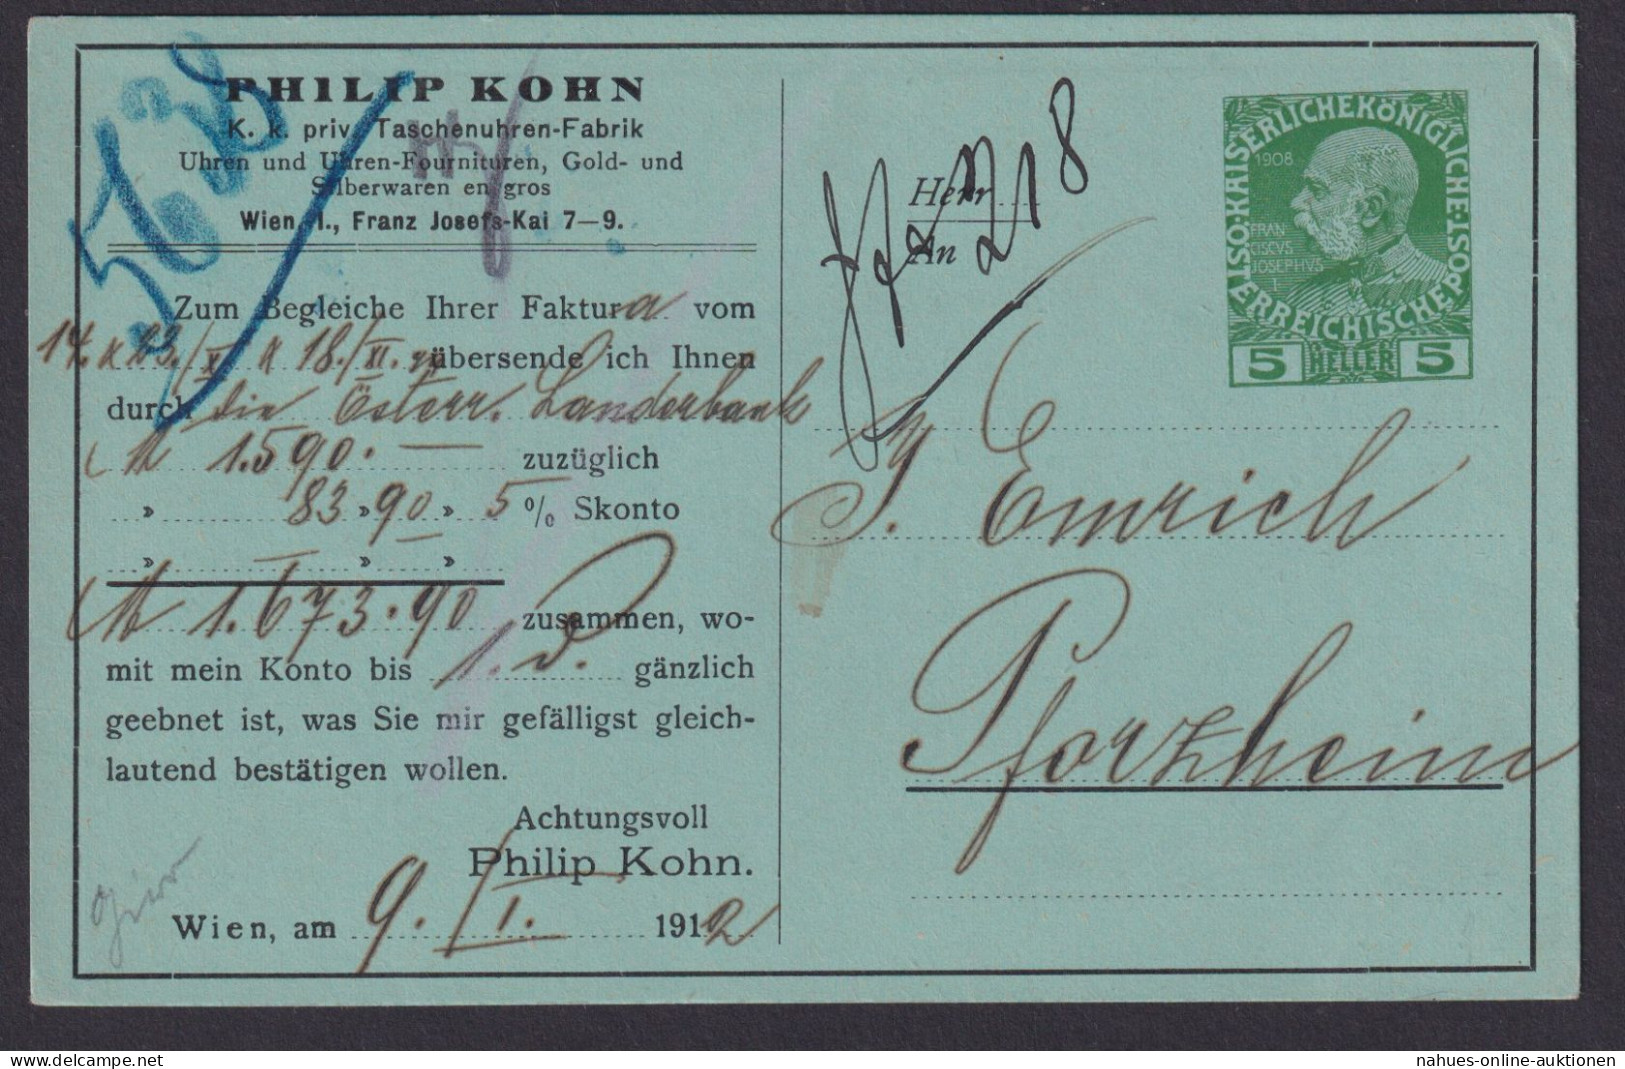 PHILIP KOHN
K. k. priv. Taschenuhren-Fabrik
Uhren und Uhren-Fournituren, Gold- und
Silberwaren en gros
Wien, I., Franz Josefs-Kai 7—9.
Zum Begleiche Ihrer Faktura vom
14. & 23./XI & 18./XI. übersende ich Ihnen
durch die Österr. Länderbank
M 1.590.— zuzüglich
» 83 » 90 » 5 % Skonto
» » »
M 1.673.90 zusammen, wo-
mit mein Konto bis 1. d. gänzlich
geebnet ist, was Sie mir gefälligst gleich-
lautend bestätigen wollen.
Achtungsvoll
Philip Kohn.
Wien, am 9./I. 1912
Herrn
An
J. Emrich
Pforzheim
KAISERLICHEKÖNIGLICHE
ÖSTERREICHISCHE POST
1908
FRAN
CISCVS
JOSEPHVS
I
5 HELLER 5
nahues-online-auktionen